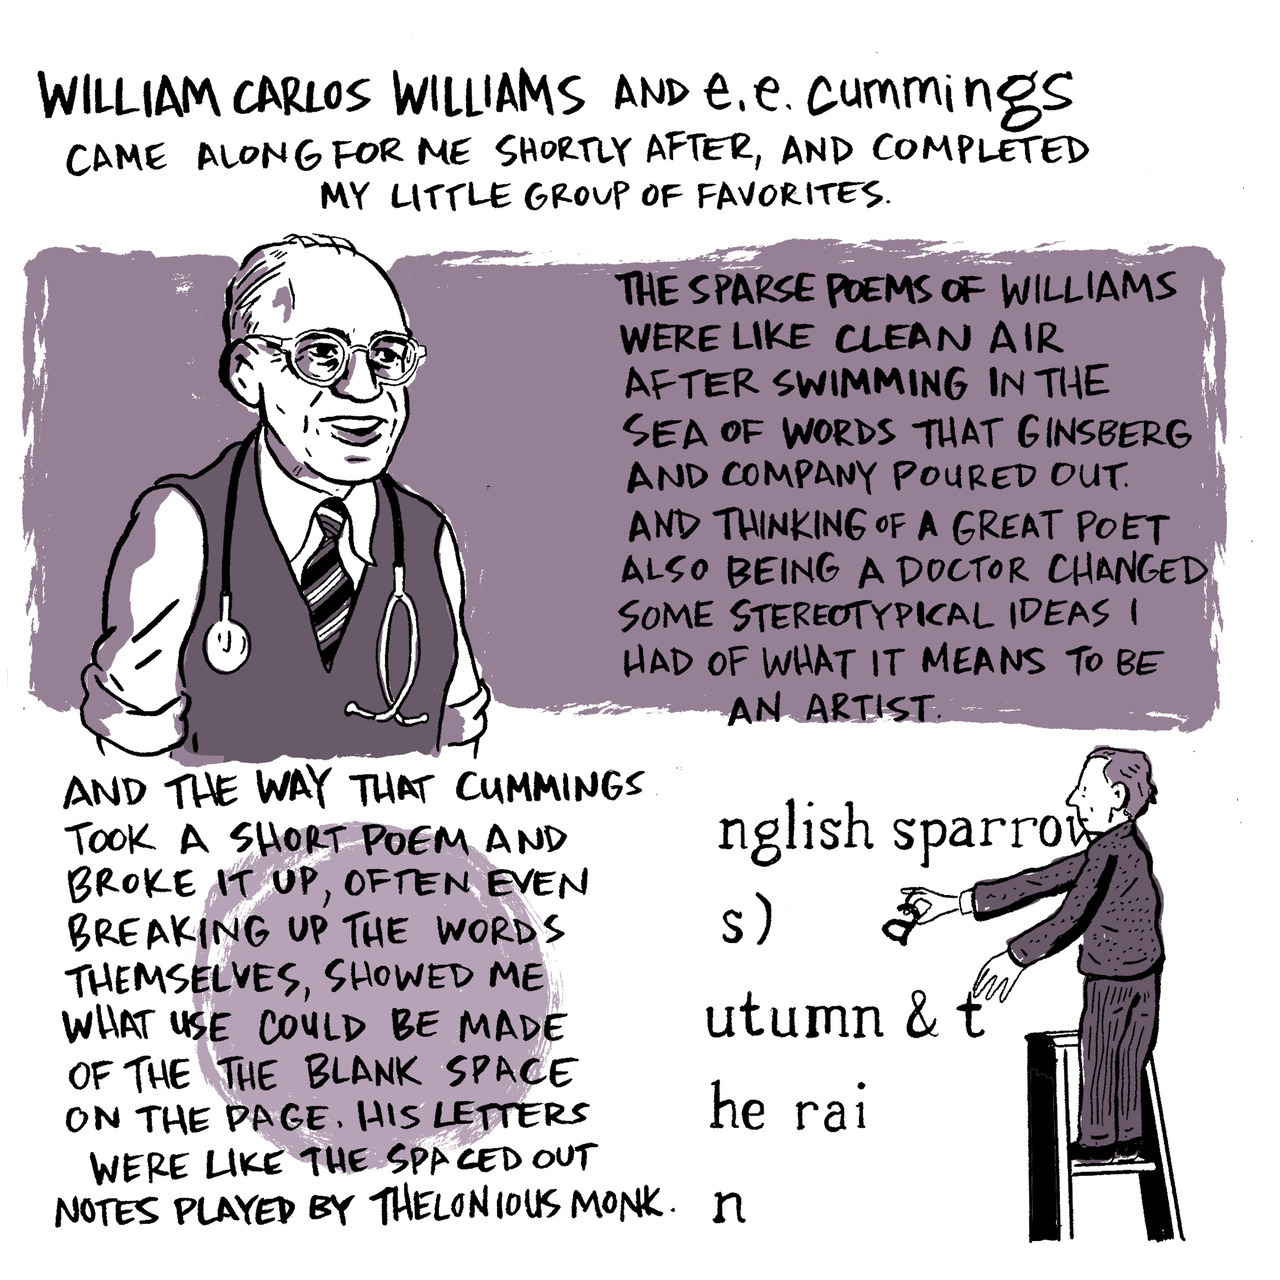 WILLIAM CARLOS WILLIAMS AND e.e. cummings
CAME ALONG FOR ME SHORTLY AFTER, AND COMPLETED
MY LITTLE GROUP OF FAVORITES.
THE SPARSE POEMS OF WILLIAMS
WERE LIKE CLEAN AIR
AFTER SWIMMING IN THE
SEA OF WORDS THAT GINSBERG
AND COMPANY POURED OUT.
AND THINKING OF A GREAT POET
ALSO BEING A DOCTOR CHANGED
SOME STEREOTYPICAL IDEAS I
HAD OF WHAT IT MEANS TO BE
AN ARTIST.
AND THE WAY THAT CUMMINGS
TOOK A SHORT POEM AND
BROKE IT UP, OFTEN EVEN
BREAKING UP THE WORDS
THEMSELVES, SHOWED ME
WHAT USE COULD BE MADE
OF THE THE BLANK SPACE
ON THE PAGE. HIS LETTERS
WERE LIKE THE SPACED OUT
NOTES PLAYED BY THELONIOUS MONK.
nglish sparrow
s) a
utumn & t
he rai
n